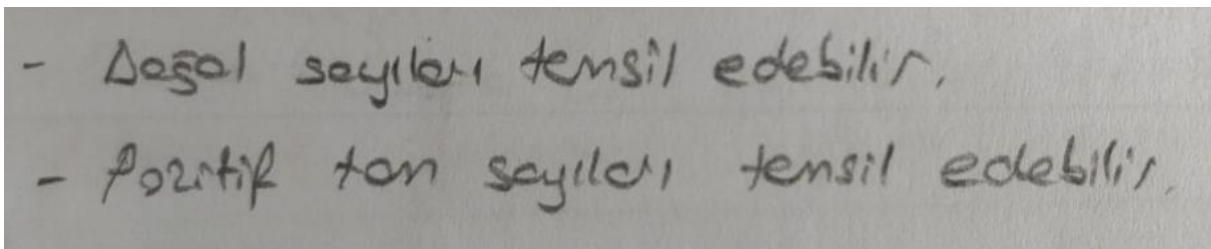 - Doğal sayıları temsil edebilir.
- Pozitif tam sayıları temsil edebilir.